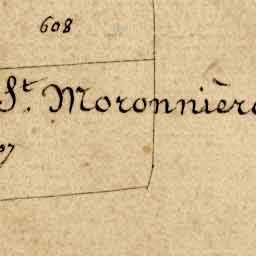 608
St. Moronnière
07